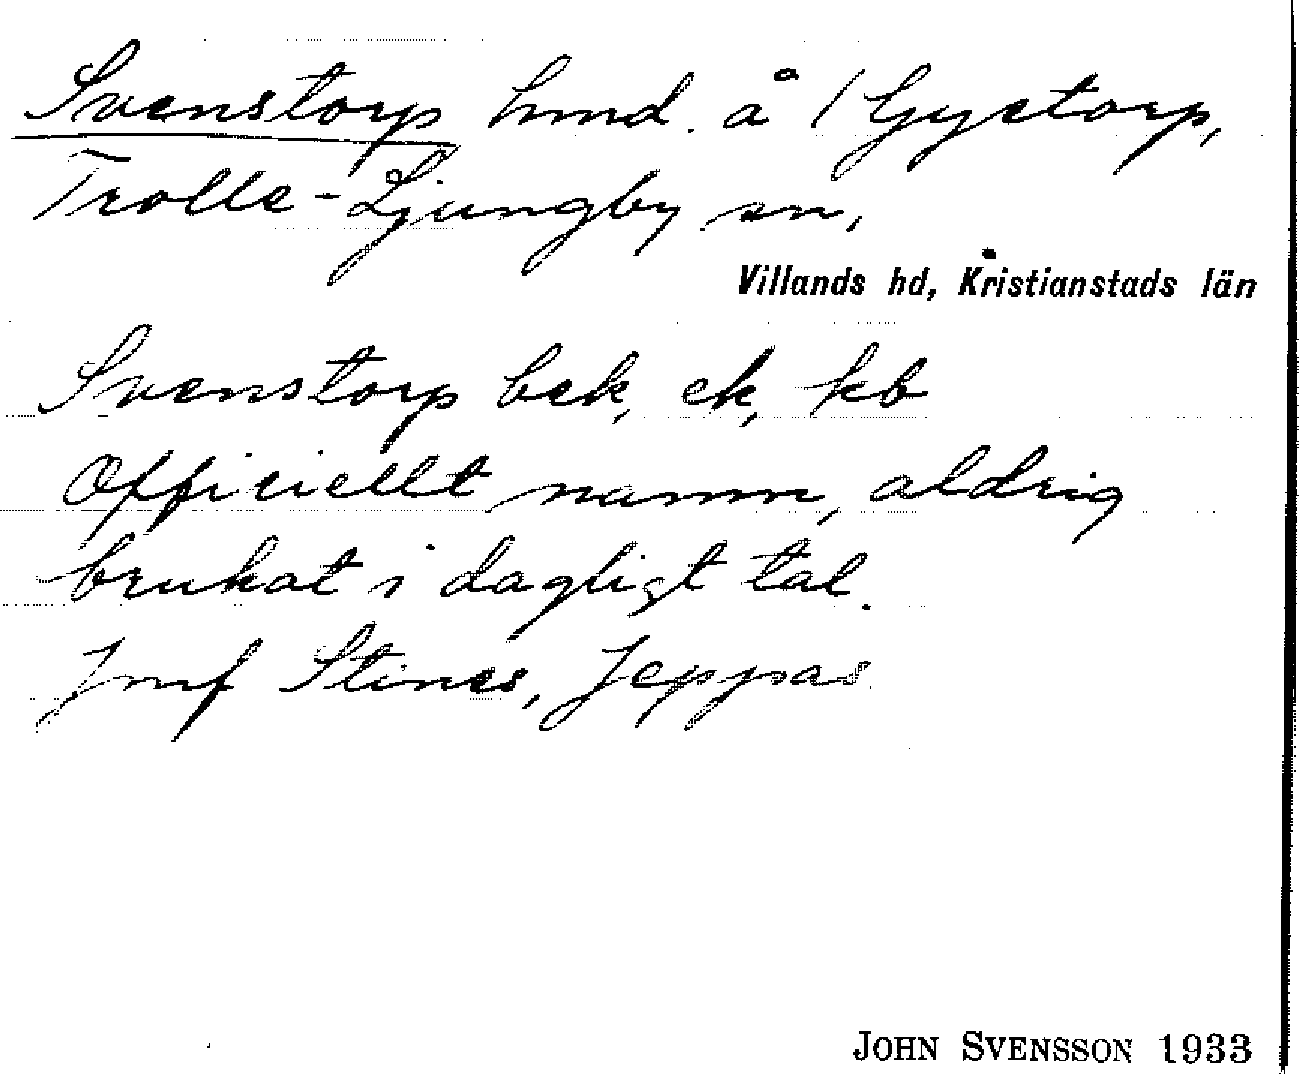 Svenstorp hmd. å 1 Gyetorp,
Trolle-Ljungby sn,
Villands hd, Kristianstads län
Svenstorp bek, ek, kb
Officiellt namn, aldrig
brukat i dagligt tal.
Jmf Stines, Jeppas
JOHN SVENSSON 1933